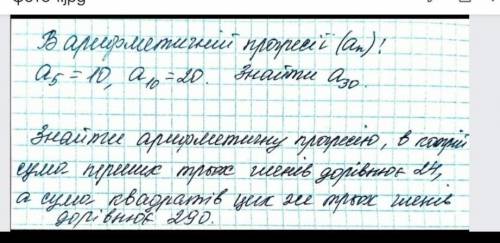 фото 4.jpg
В арифметичній прогресії (an)!
a5 = 10, a10 = 20. Знайти a30.
Знайти арифметичну прогресію, в котрій
сума перших трьох членів дорівнює 24,
а сума квадратів цих же трьох членів
дорівнює 290.